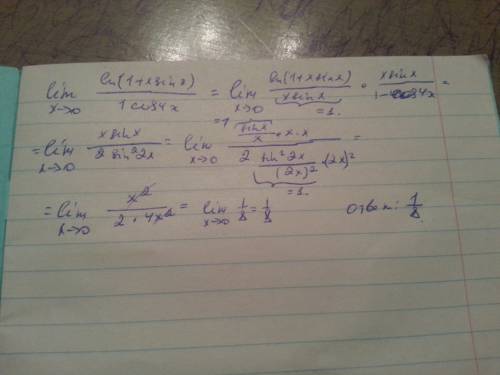 lim x→0 ln(1+xsinx) / 1 cos4x = lim x→0 ln(1+xsinx) / xsinx =1. · xsinx / 1-cos4x =
= lim x→0 xsinx / 2 sin²2x = lim x→0 =1 sinx / x · x · x / 2 sin²2x / (2x)² · (2x)² =1. =
= lim x→0 x² / 2 · 4x² = lim x→0 1/8 = 1/8 ответ: 1/8